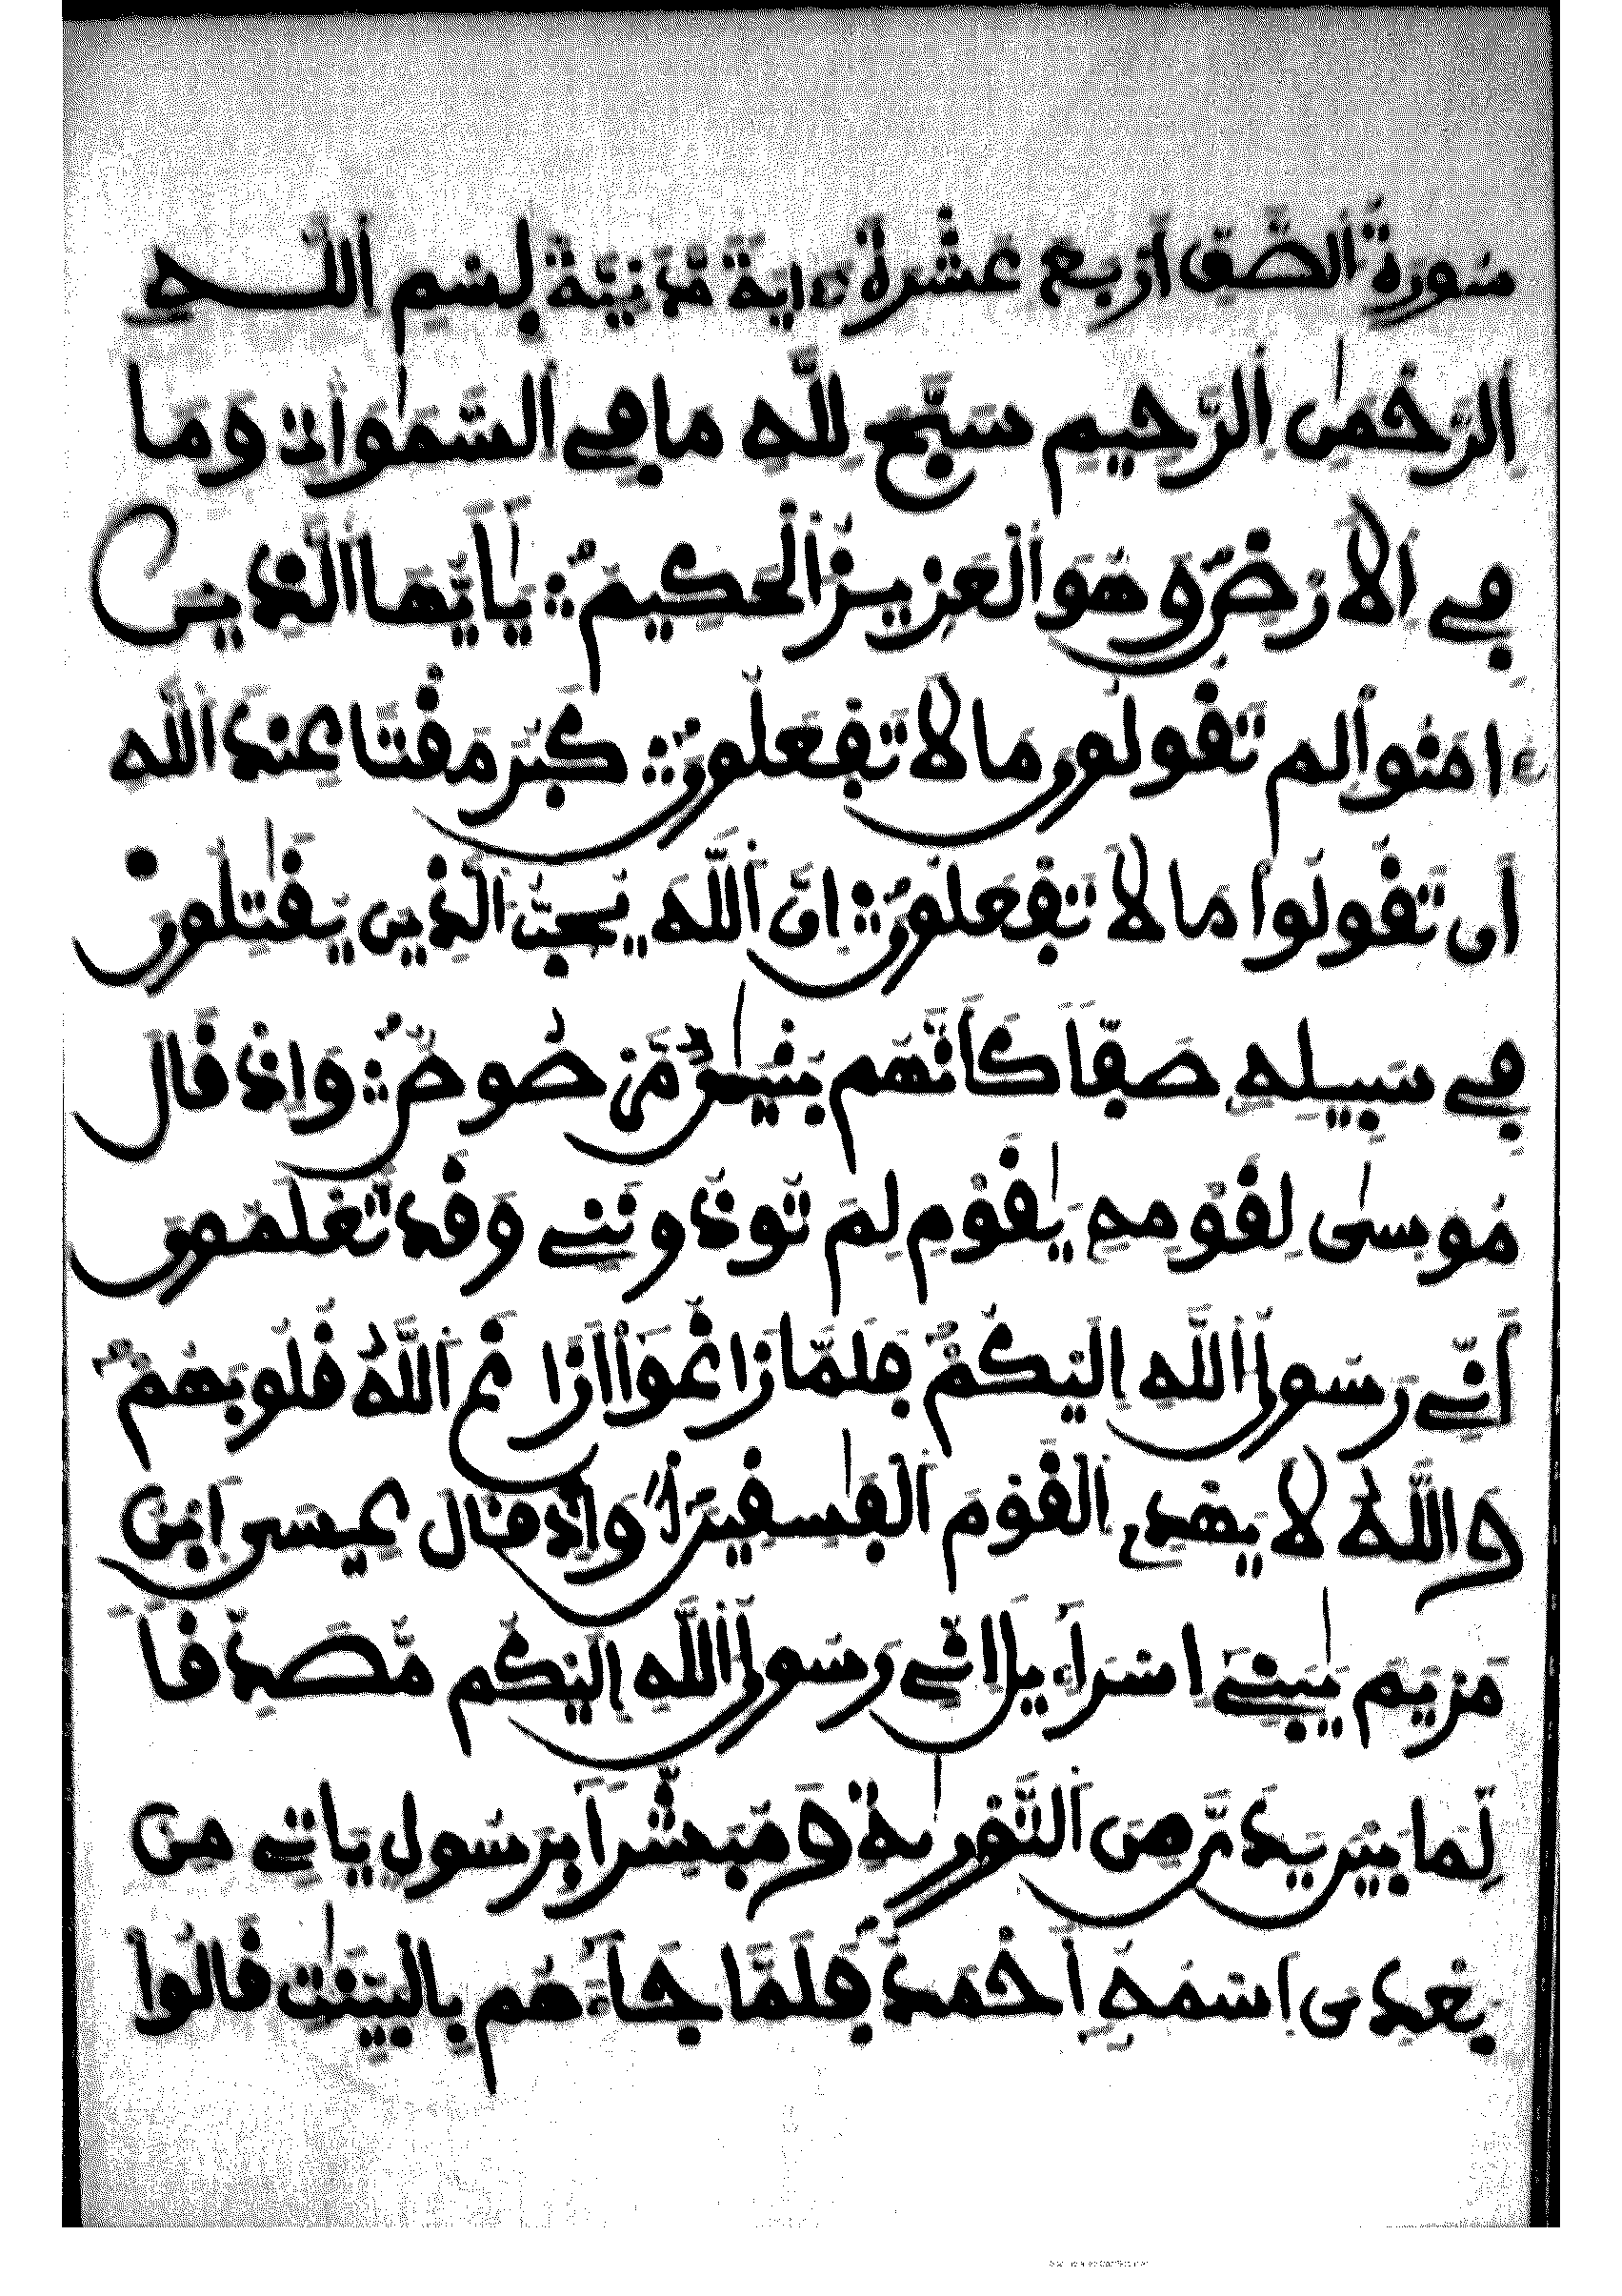 سُورَةُ ٱلصَّفِّ أَرْبَعَ عَشْرَةَ ءَايَةً مَّدَنِيَّةٌ بِسْمِ ٱللَّهِ
ٱلرَّحْمَٰنِ ٱلرَّحِيمِ سَبَّحَ لِلَّهِ مَا فِے ٱلسَّمَٰوَٰتِ وَمَا
فِے ٱلَارْضِ وَهُوَ ٱلْعَزِيزُ ٱلْحَكِيمُ يَٰأَيُّهَا ٱلَّذِينَ
ءَامَنُواْ لِمَ تَقُولُونَ مَا لَا تَفْعَلُونَ كَبُرَ مَقْتًا عِندَ ٱللَّهِ
أَن تَقُولُواْ مَا لَا تَفْعَلُونَ إِنَّ ٱللَّهَ يُحِبُّ ٱلَّذِينَ يُقَٰتِلُونَ
فِے سَبِيلِهِ صَفًّا كَأَنَّهُم بُنْيَٰنٌ مَّرْصُوصٌ وَإِذْ قَالَ
مُوسَىٰ لِقَوْمِهِ يَٰقَوْمِ لِمَ تُوذُونَنِے وَقَد تَّعْلَمُونَ
أَنِّے رَسُولُ ٱللَّهِ إِلَيْكُمْ فَلَمَّا زَاغُواْ أَزَاغَ ٱللَّهُ قُلُوبَهُمْ
وَٱللَّهُ لَا يَهْدِے ٱلْقَوْمَ ٱلْفَٰسِقِينَ وَإِذْ قَالَ عِيسَى ٱبْنُ
مَرْيَمَ يَٰبَنِے إِسْرَآءِيلَ إِنِّے رَسُولُ ٱللَّهِ إِلَيْكُم مُّصَدِّقًا
لِّمَا بَيْنَ يَدَيَّ مِنَ ٱلتَّوْرَىٰةِ وَمُبَشِّرًا بِرَسُولٍ يَاتِے مِنۢ
بَعْدِى ٱسْمُهُ أَحْمَدُ فَلَمَّا جَآءَهُم بِالْبَيِّنَٰتِ قَالُواْ